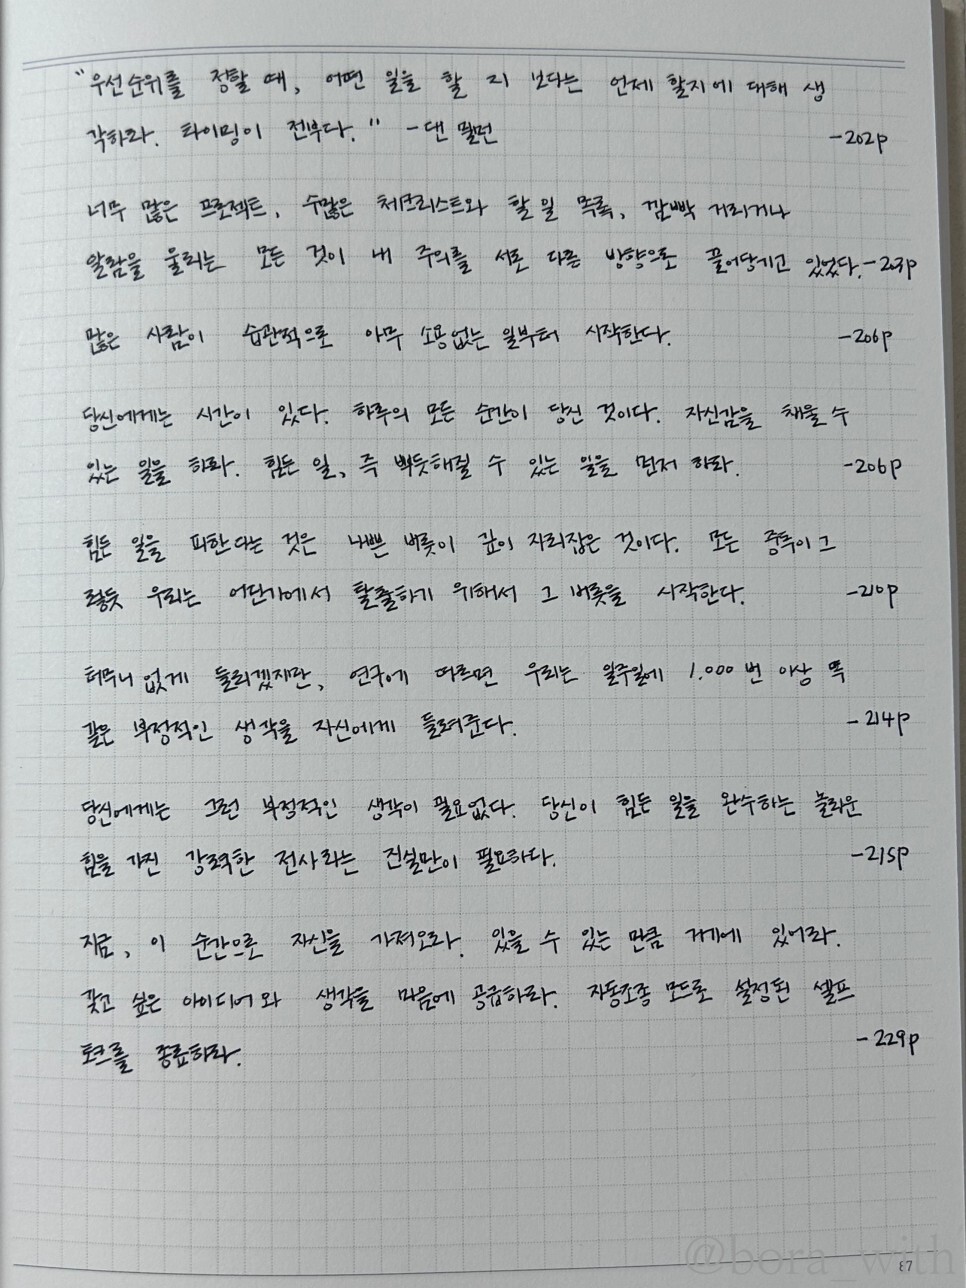 "우선순위를 정할 때, 어떤 일을 할 지 보다는 언제 할지에 대해 생
각하라. 타이밍이 전부다." - 댄 밀먼 -202p
너무 많은 프로젝트, 수많은 체크리스트와 할 일 목록, 깜빡 거리거나
알람을 울리는 모든 것이 내 주의를 서로 다른 방향으로 끌어당기고 있었다. -203p
많은 사람이 습관적으로 아무 소용없는 일부터 시작한다. -206p
당신에게는 시간이 있다. 하루의 모든 순간이 당신 것이다. 자신감을 채울 수
있는 일을 하라. 힘든 일, 즉 뿌듯해질 수 있는 일을 먼저 하라. -206p
힘든 일을 피한다는 것은 나쁜 버릇이 깊이 자리잡은 것이다. 모든 중독이 그
렇듯 우리는 어딘가에서 탈출하기 위해서 그 버릇을 시작한다. -210p
터무니 없게 들리겠지만, 연구에 따르면 우리는 일주일에 1.000번 이상 똑
같은 부정적인 생각을 자신에게 들려준다. -214p
당신에게는 그런 부정적인 생각이 필요없다. 당신이 힘든 일을 완수하는 놀라운
힘을 가진 강력한 전사라는 진실만이 필요하다. -215p
지금, 이 순간으로 자신을 가져오라. 있을 수 있는 만큼 거기에 있어라.
갖고 싶은 아이디어와 생각을 마음에 공급하라. 자동조종 모드로 설정된 셀프
토크를 종료하라. -229p
@bora_with
87